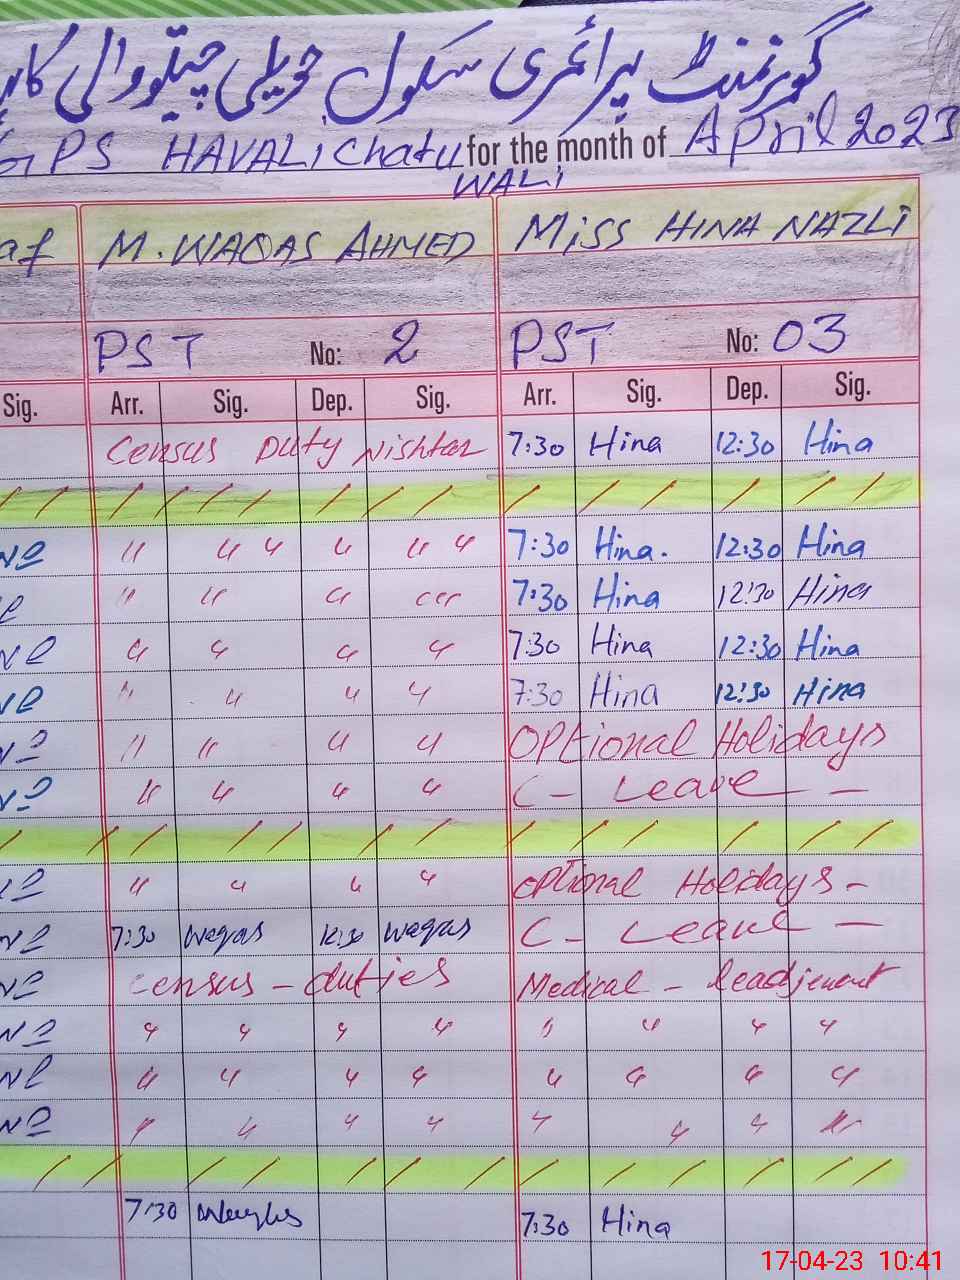 گورنمنٹ پرائمری سکول حویلی چیتووالی
GPS HAVALI Chatu for the month of April 2023
WALI
af M. WAQAS AHMED Miss HINA NAZLI
PST No: 2 PST No: 03
Sig. Arr. Sig. Dep. Sig. Arr. Sig. Dep. Sig.
Census Duty Nishtar 7:30 Hina 12:30 Hina
/ / / / / / / / / / / / / /
ne " " " " " " 7:30 Hina. 12:30 Hina
e " " " " 7:30 Hina 12:30 Hina
ne " " " " 7:30 Hina 12:30 Hina
ne " " " " 7:30 Hina 12:30 Hina
ne " " " " OPtional Holidays
ne " " " " C - Leave -
/ / / / / / / / / / / / / /
ne " " " " OPtional Holidays -
ne 7:30 Waqas 12:30 Waqas C - Leave -
ne Census - duties Medical -
ne " " " " " " " "
ne " " " " " " " "
ne " " " " " " " "
/ / / / / / / / / / / / / /
7:30 7:30 Hina
17-04-23 10:41